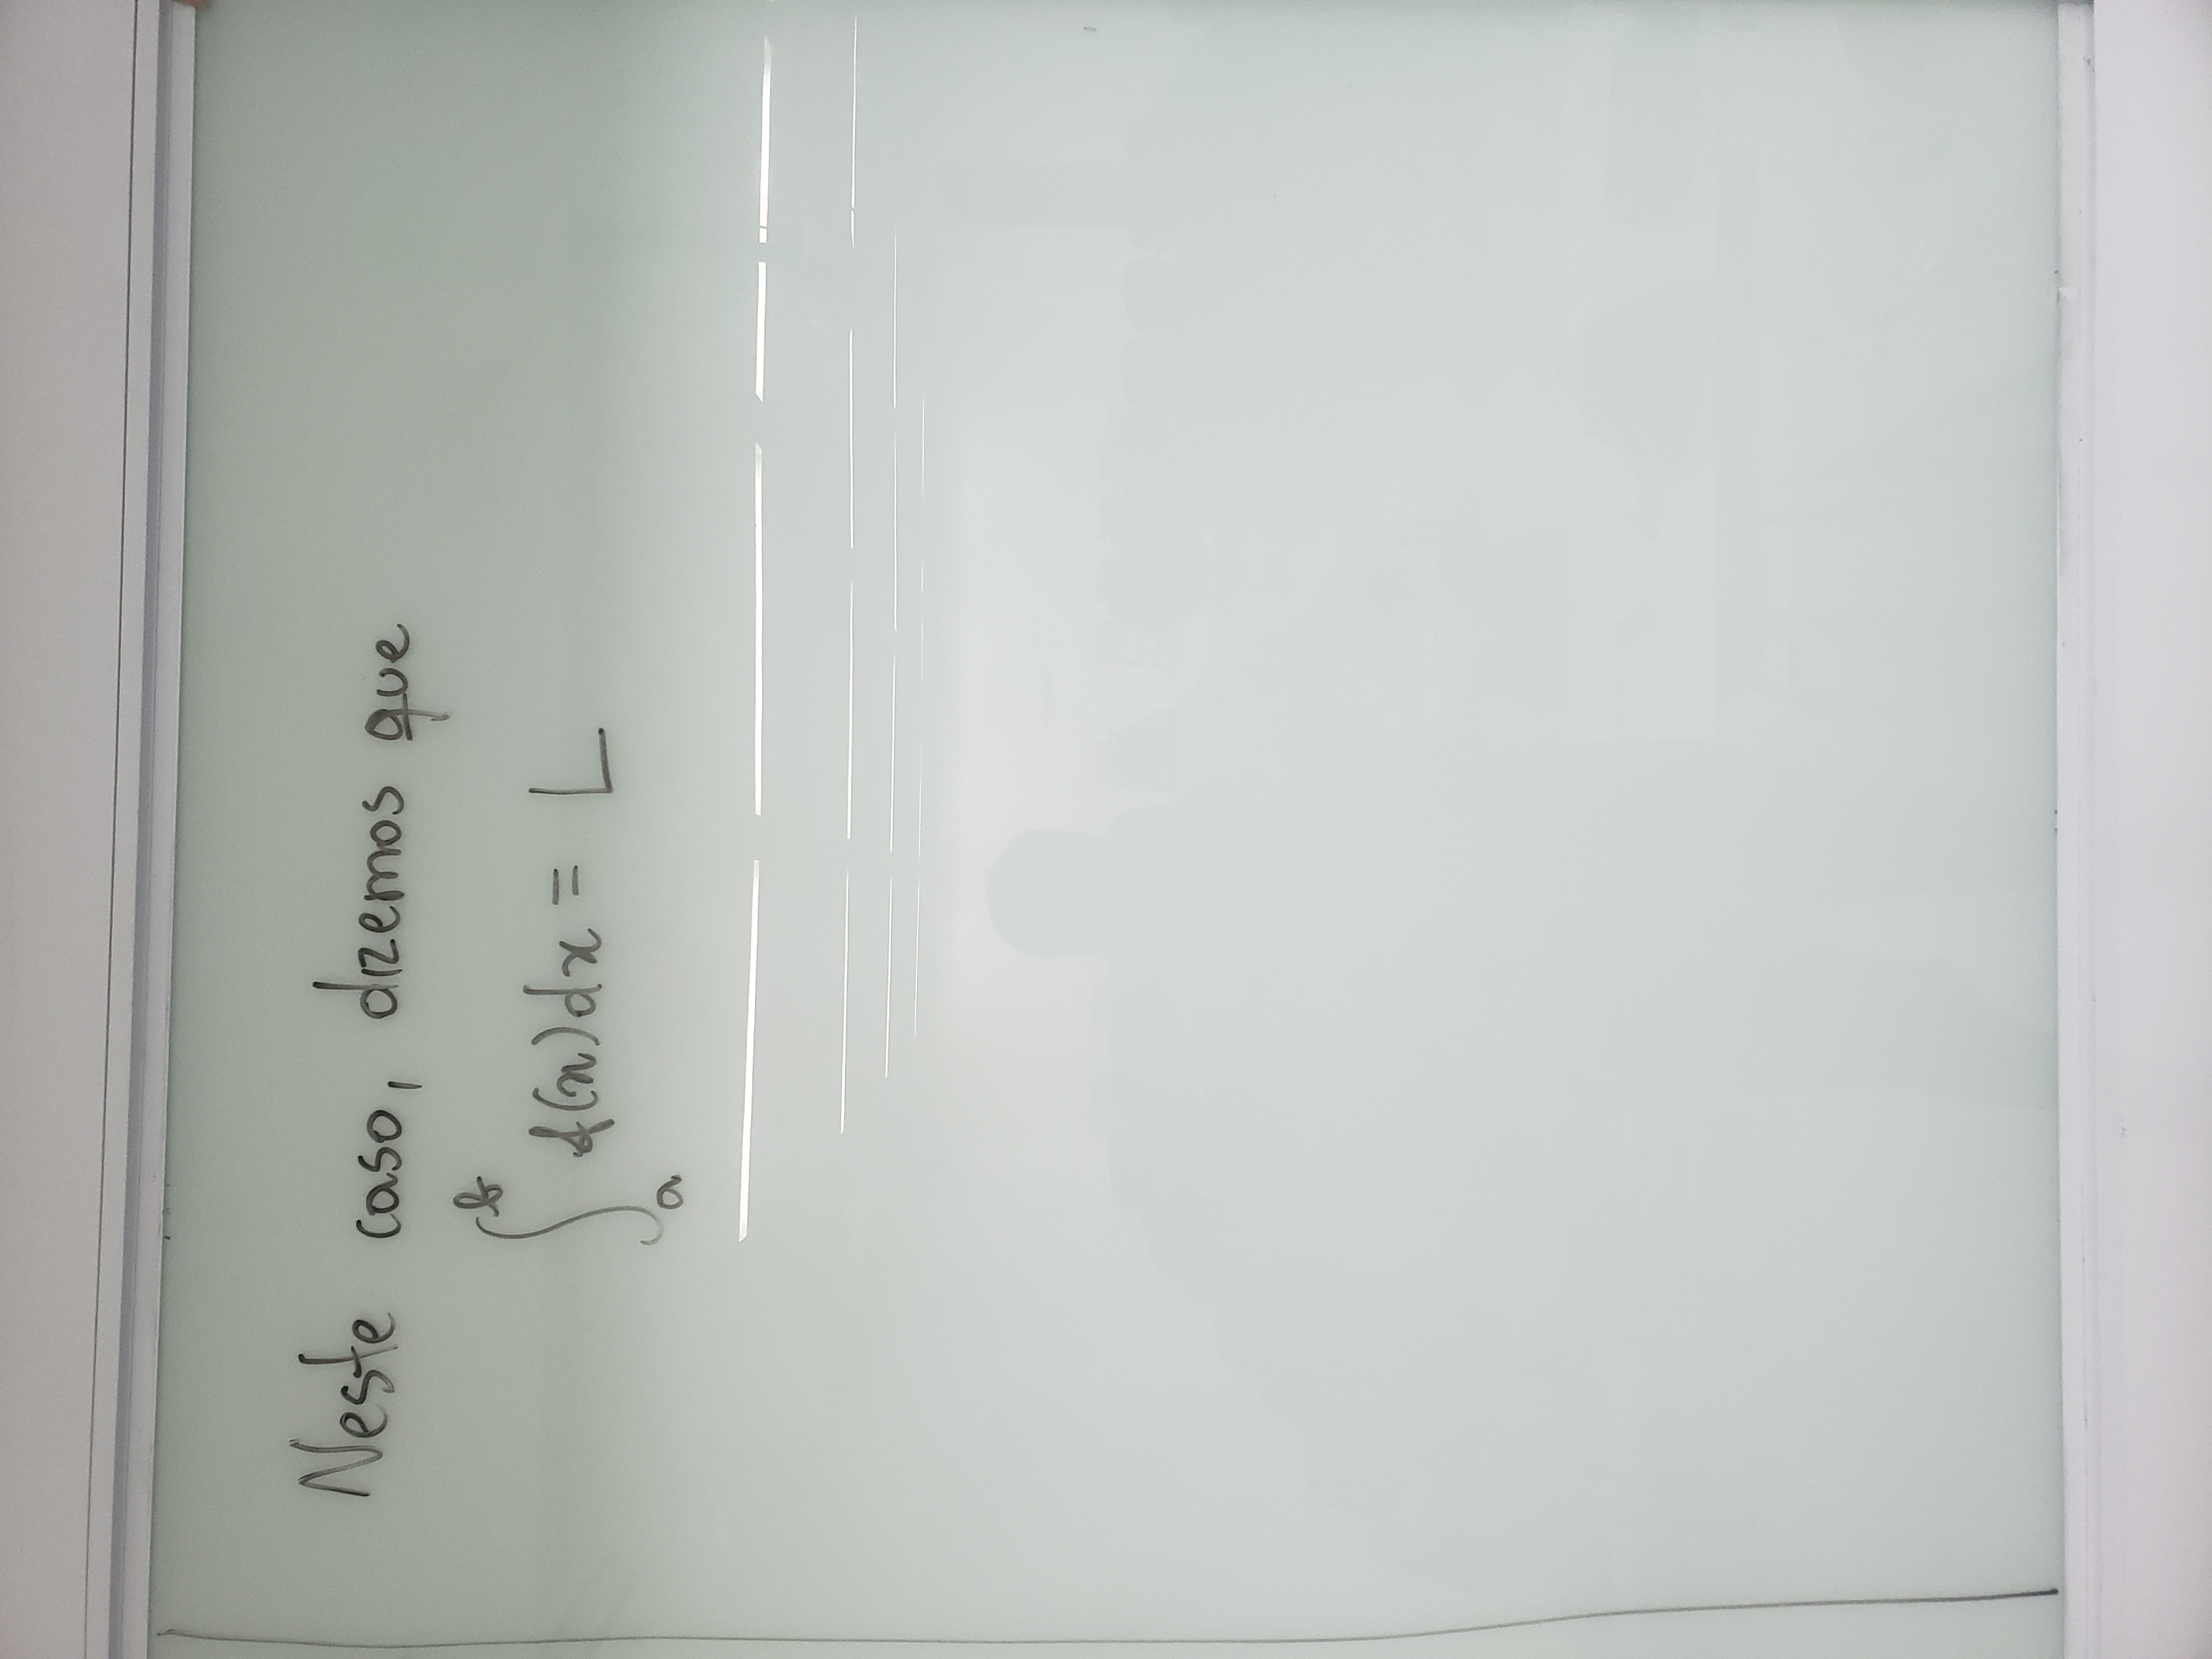 Neste caso, dizemos que
∫_a^b f(x)dx = L